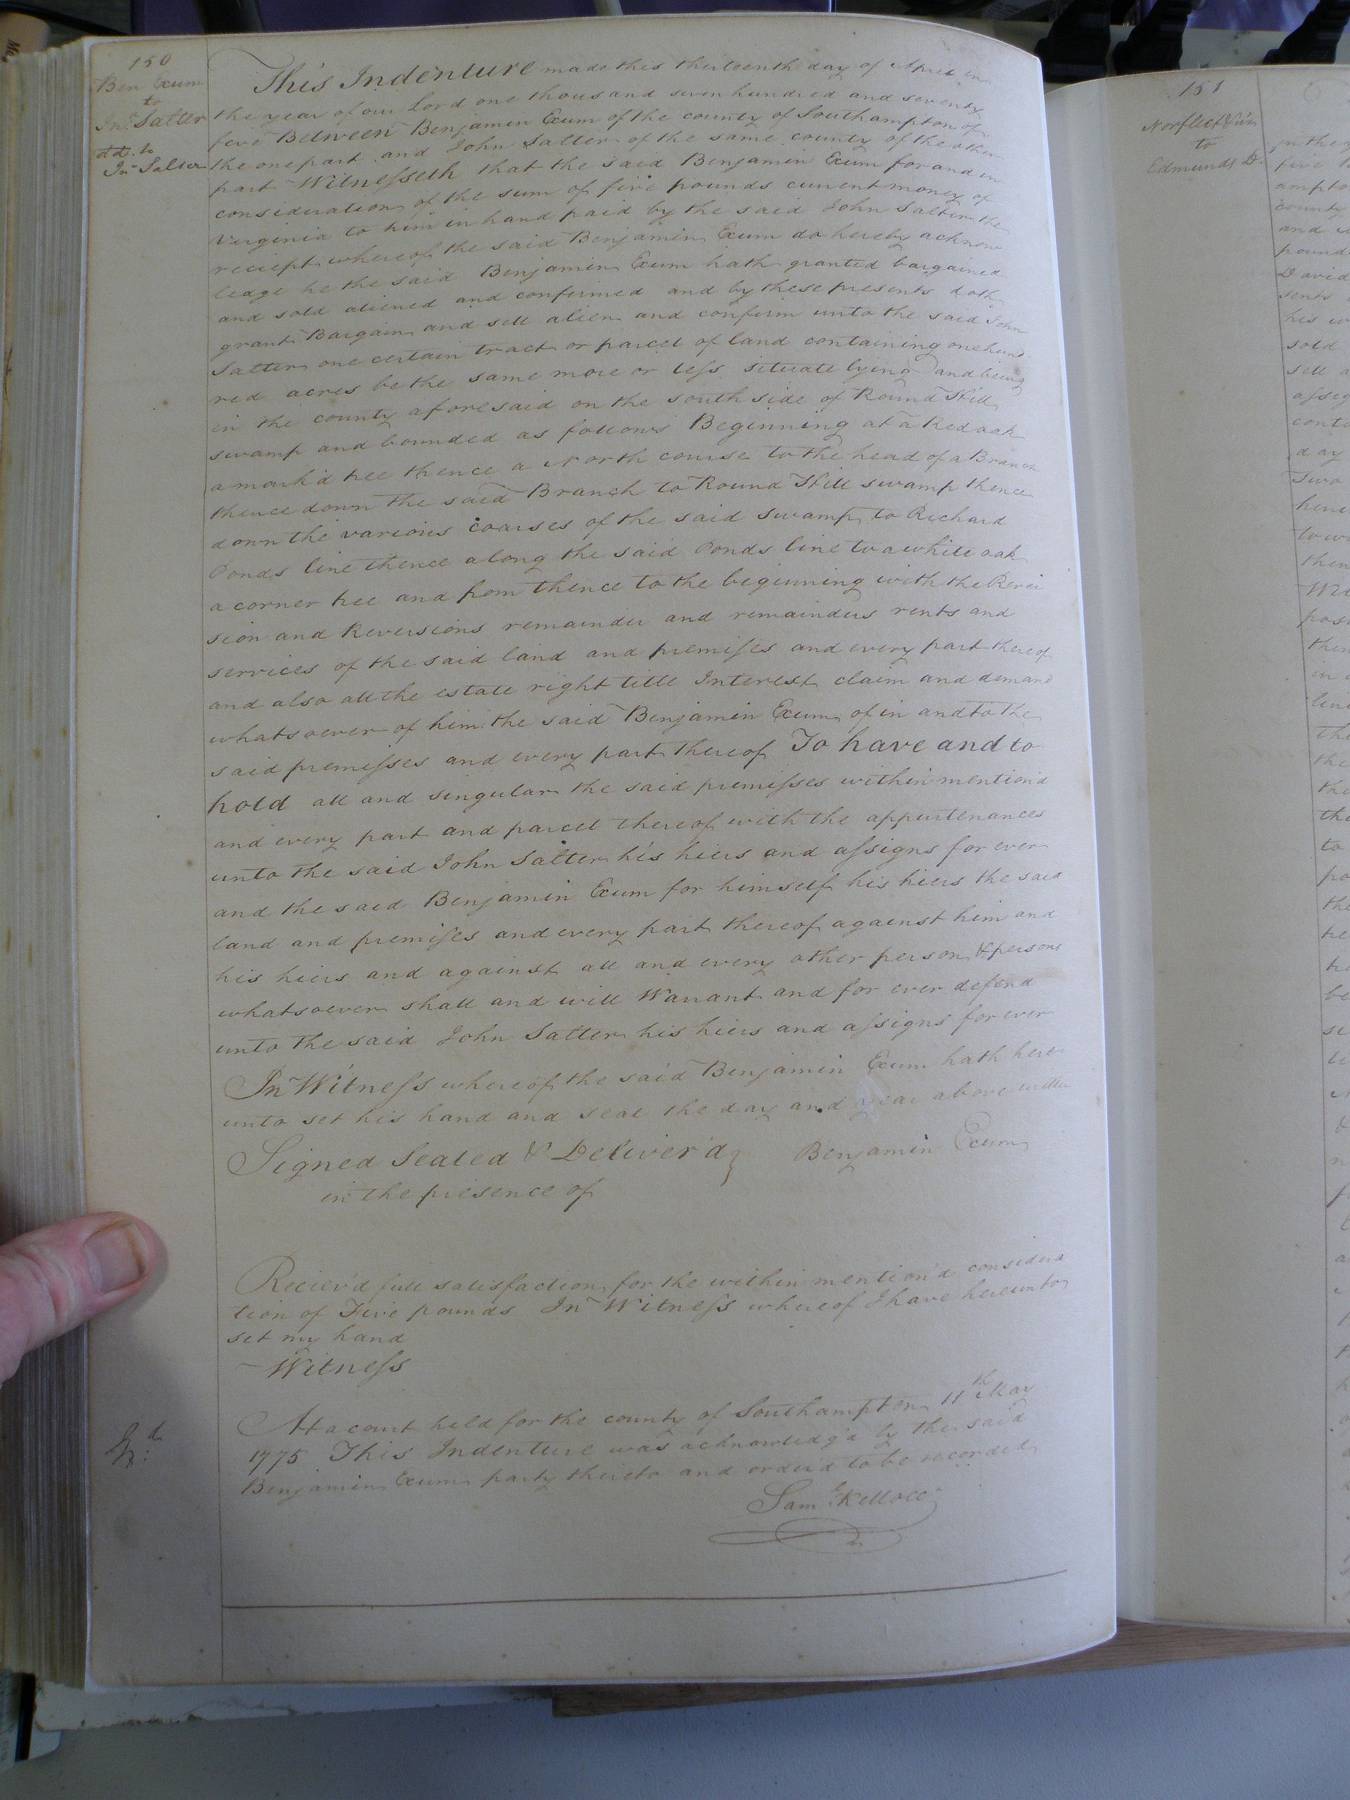 150
Ben Exum
to
Jnº Salter
dd. to
Jnº Salter
This Indenture made this thirteenth day of April in
the year of our Lord one thousand seven hundred and seventy
five Between Benjamin Exum of the county of Southampton of
the one part and John Salter of the same county of the other
part Witnesseth that the said Benjamin Exum for and in
consideration of the sum of five pounds current money of
Virginia to him in hand paid by the said John Salter the
reciept whereof the said Benjamin Exum do hereby acknow
ledge he the said Benjamin Exum hath granted bargained
and sold aliened and confirmed and by these presents doth
grant Bargain and sell alien and confirm unto the said John
Salter one certain tract or parcel of land containing one hund
red acres be the same more or less situate lying and being
in the county aforesaid on the south side of Round Hill
swamp and bounded as follows Beginning at a Red oak
a mark'd tree thence a North course to the head of a Branch
thence down the said Branch to Round Hill swamp thence
down the various coarses of the said swamp to Richard
Ponds line thence along the said Ponds line to a white oak
a corner tree and from thence to the beginning with the Rever
sion and Reversions remainder and remainders rents and
services of the said land and premisses and every part thereof
and also all the estate right title Interest claim and demand
whatsoever of him the said Benjamin Exum of in and to the
said premisses and every part thereof To have and to
hold all and singular the said premisses within mention'd
and every part and parcel thereof with the appurtenances
unto the said John Salter his hiers and assigns for ever
and the said Benjamin Exum for himself his hiers the said
land and premises and every part thereof against him and
his hiers and against all and every other person & persons
whatsoever shall and will Warrant and for ever defend
unto the said John Salter his hiers and assigns for ever
In Witness whereof the said Benjamin Exum hath here
unto set his hand and seal the day and year above written
Signed Sealed & Deliver'd Benjamin Exum
in the presence of
Reciev'd full satisfaction for the within mention'd considera
tion of Five pounds In Witness whereof I have hereunto
set my hand
Witness
At a court held for the county of Southampton 11th May
1775 This Indenture was acknowledg'd by the said
Benjamin Exum party thereto and orderd to be recorded
Sam Kello CC
151
Norfleet
to
Edmunds D.
in the
five
ampto
county
and
pound
David
sents
his
sold
sell a
assig
conta
day
Two
here
to
then
Wit
poss
them
in
line
the
the
the
tho
to
po
the
he